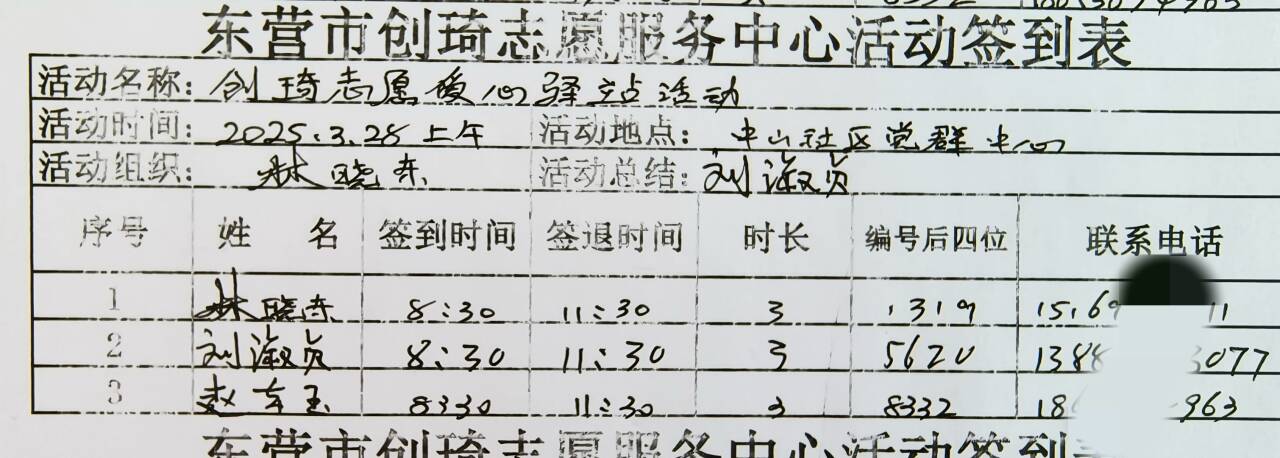 东营市创琦志愿服务中心活动签到表
活动名称：创琦志愿爱心驿站活动
活动时间：2025.3.28上午 活动地点：中山社区党群中心
活动组织：林晓东 活动总结：刘淑贞
序号 姓 名 签到时间 签退时间 时长 编号后四位 联系电话
1 林晓东 8:30 11:30 3 1319 15169 11
2 刘淑贞 8:30 11:30 3 5620 1388 3077
3 赵东玉 8330 11:30 3 8332 18 963
东营市创琦志愿服务中心活动签到表